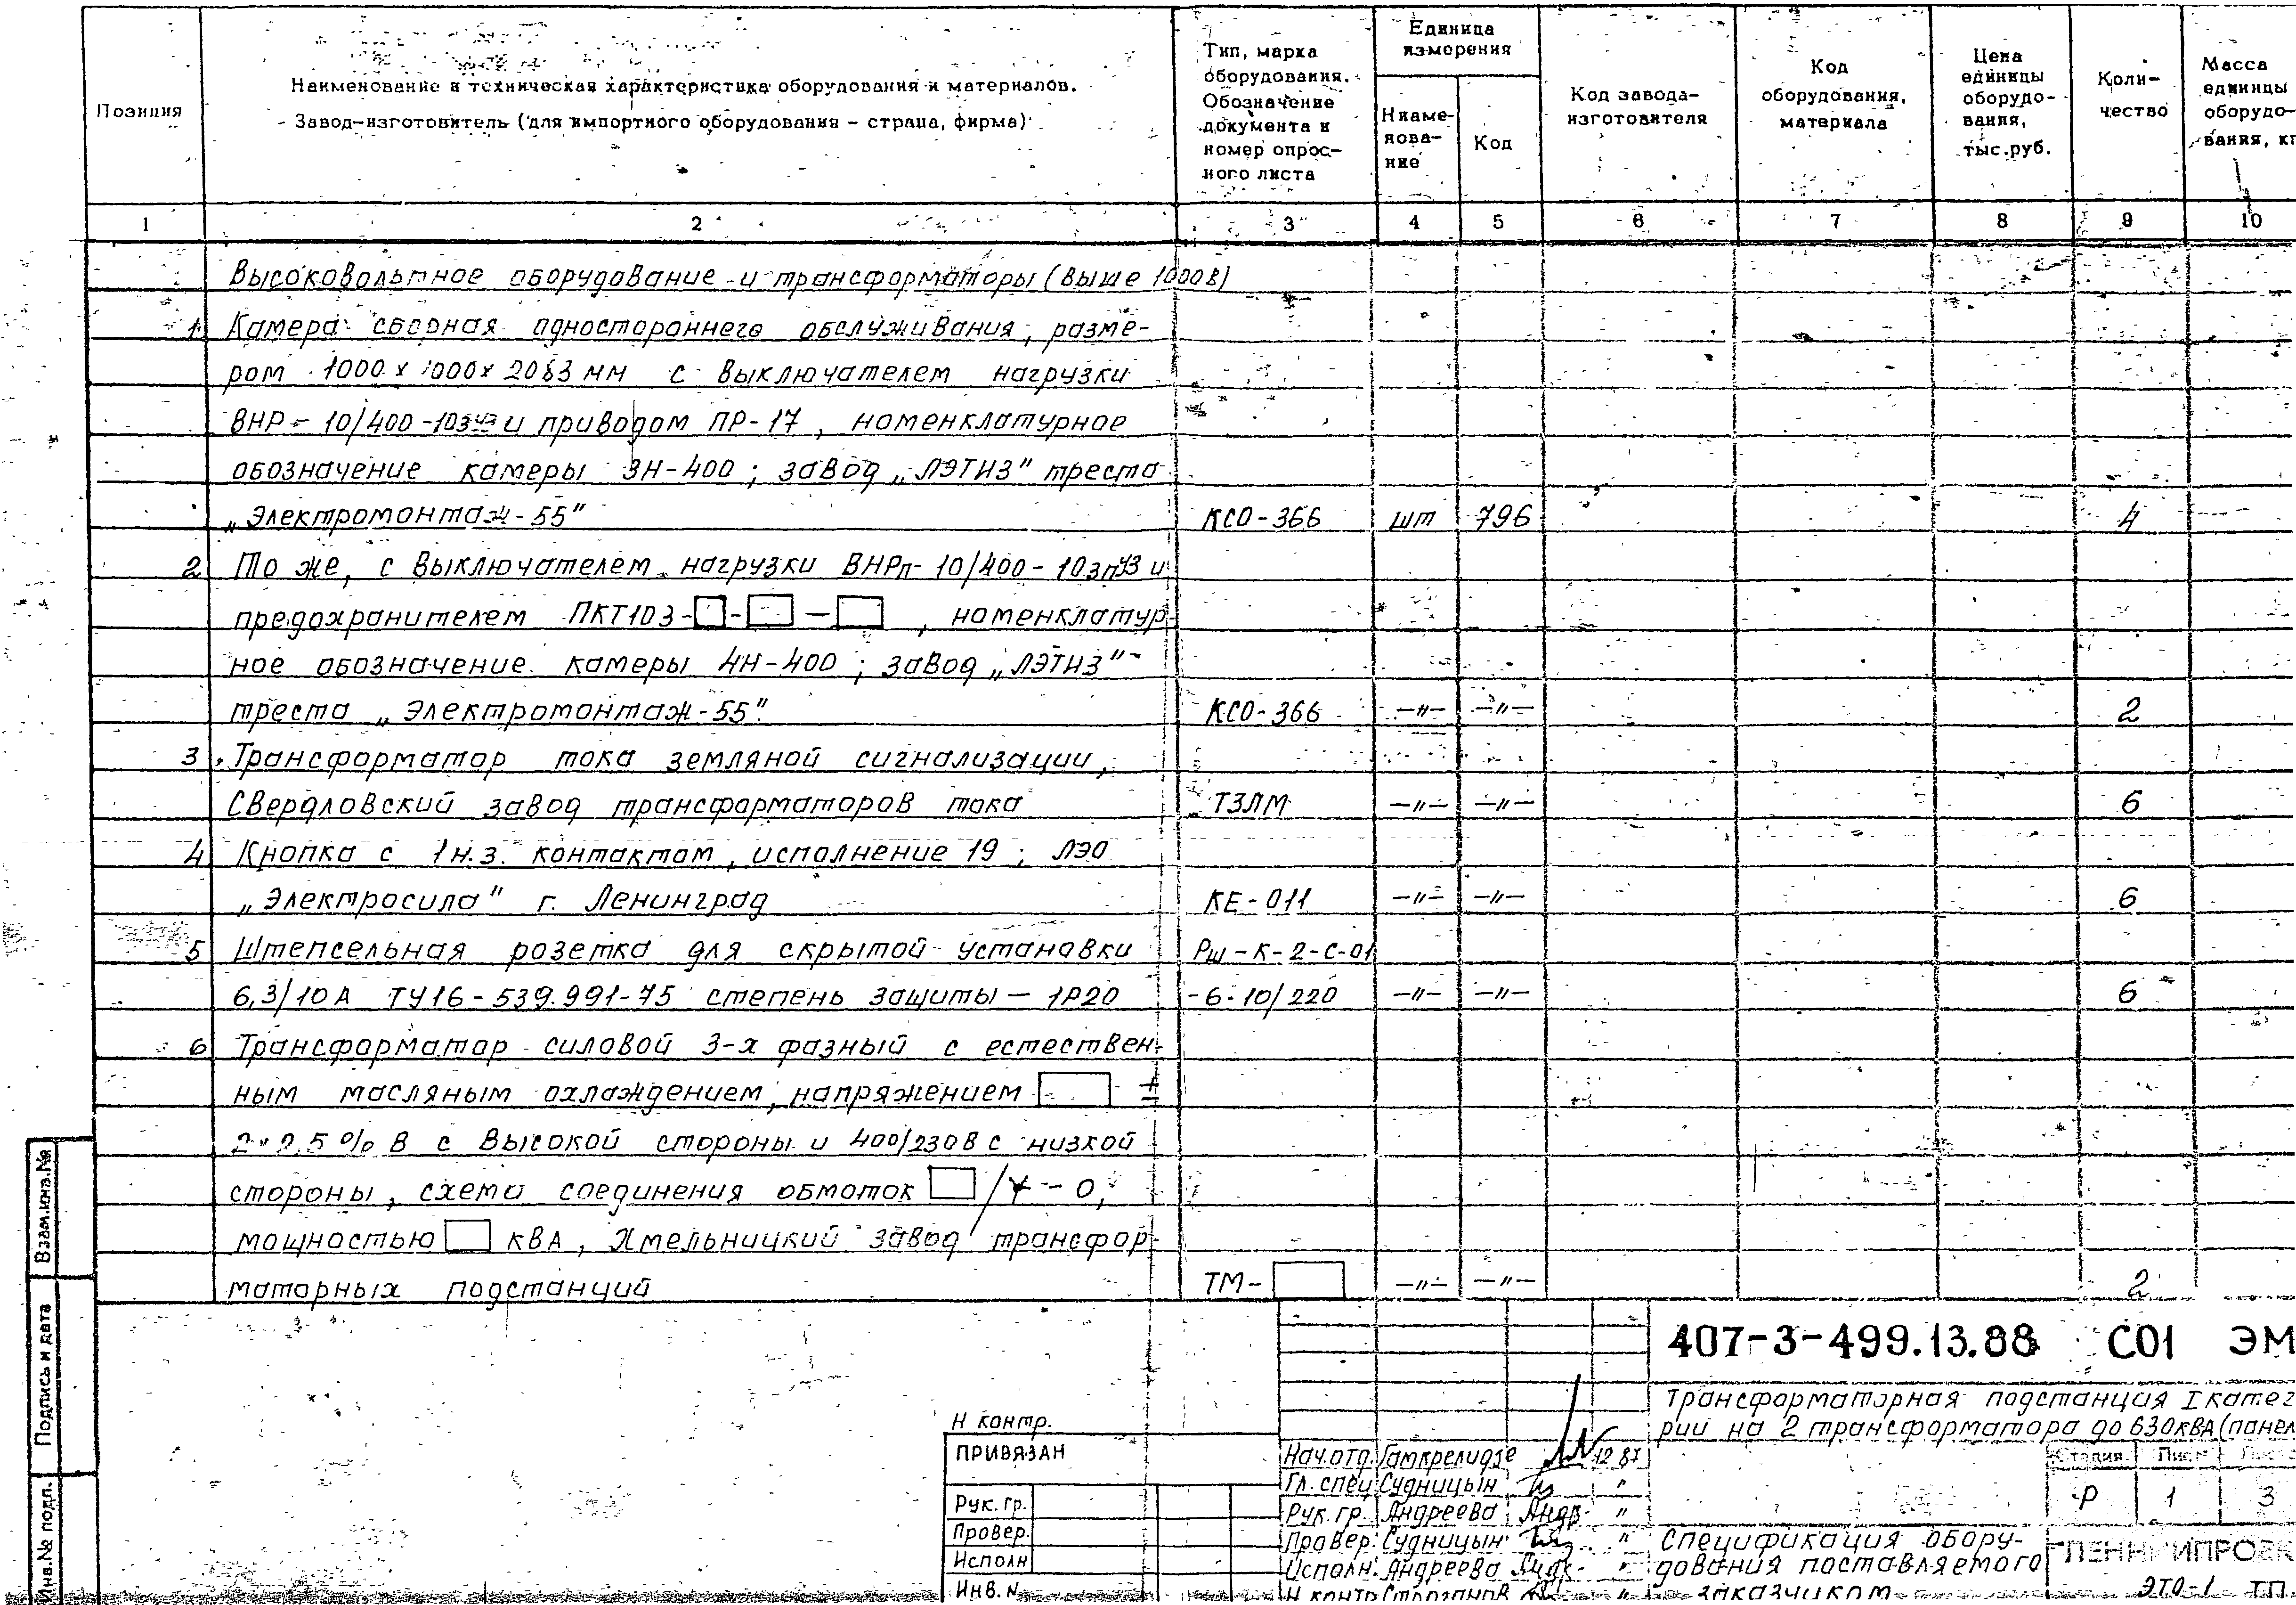 Позиция
Наименование и техническая характеристика оборудования и материалов.
Завод-изготовитель (для импортного оборудования – страна, фирма)
Тип, марка
оборудования.
Обозначение
документа и
номер опрос-
ного листа
Единица
измерения
Наиме-
нова-
ние
Код
Код завода-
изготовителя
Код
оборудования,
материала
Цена
единицы
оборудо-
вания,
тыс.руб.
Коли-
чество
Масса
единицы
оборудо-
вания, кг
1 2 3 4 5 6 7 8 9 10
Высоковольтное оборудование и трансформаторы (выше 1000В)
1 Камера сборная одностороннего обслуживания, разме-
ром 1000 х 1000х 2083 мм с выключателем нагрузки
ВНР – 10/400 -10зУ3 и приводом ПР-17, номенклатурное
обозначение камеры 3Н-400; завод „ЛЭТИЗ" треста
„Электромонтаж-55" КСО-366 шт 796 4
2 То же, с выключателем нагрузки ВНРп- 10/400 - 10зпУ3 и
предохранителем ПКТ103-□-□-□, номенклатур-
ное обозначение камеры 4Н-400; завод „ЛЭТИЗ"
треста „Электромонтаж-55". КСО-366 —"— —"— 2
3 Трансформатор тока земляной сигнализации,
Свердловский завод трансформаторов тока ТЗЛМ —"— —"— 6
4 Кнопка с 1н.з. контактом, исполнение 19; ЛЭО
„Электросила" г. Ленинград КЕ-011 —"— —"— 6
5 Штепсельная розетка для скрытой установки Рш-К-2-С-01
6,3/10А ТУ16-539.991-75 степень защиты – 1Р20 -6-10/220 —"— —"— 6
6 Трансформатор силовой 3-х фазный с естествен-
ным масляным охлаждением, напряжением □ ±
2х2,5% В с высокой стороны и 400/230В с низкой
стороны, схема соединения обмоток □/Y-0,
мощностью □ кВА, Хмельницкий завод трансфор-
маторных подстанций ТМ-□ —"— —"— 2
Взам.инв.№
Подпись и дата
Инв.№ подл.
Н контр.
ПРИВЯЗАН
Рук. гр.
Провер.
Исполн
Инв. N
Нач.отд. Гамкрелидзе 12 87
Гл. спец Судницын "
Рук. гр. Андреева "
Провер. Судницын "
Исполн. Андреева "
Н контр Строганов "
407-3-499.13.88 С01 ЭМ
Трансформаторная подстанция I катег
рии на 2 трансформатора до 630кВА (панел
Стадия Лист
Р 1 3
Спецификация обору-
дования поставляемого
заказчиком
ЭТО-1 ТП